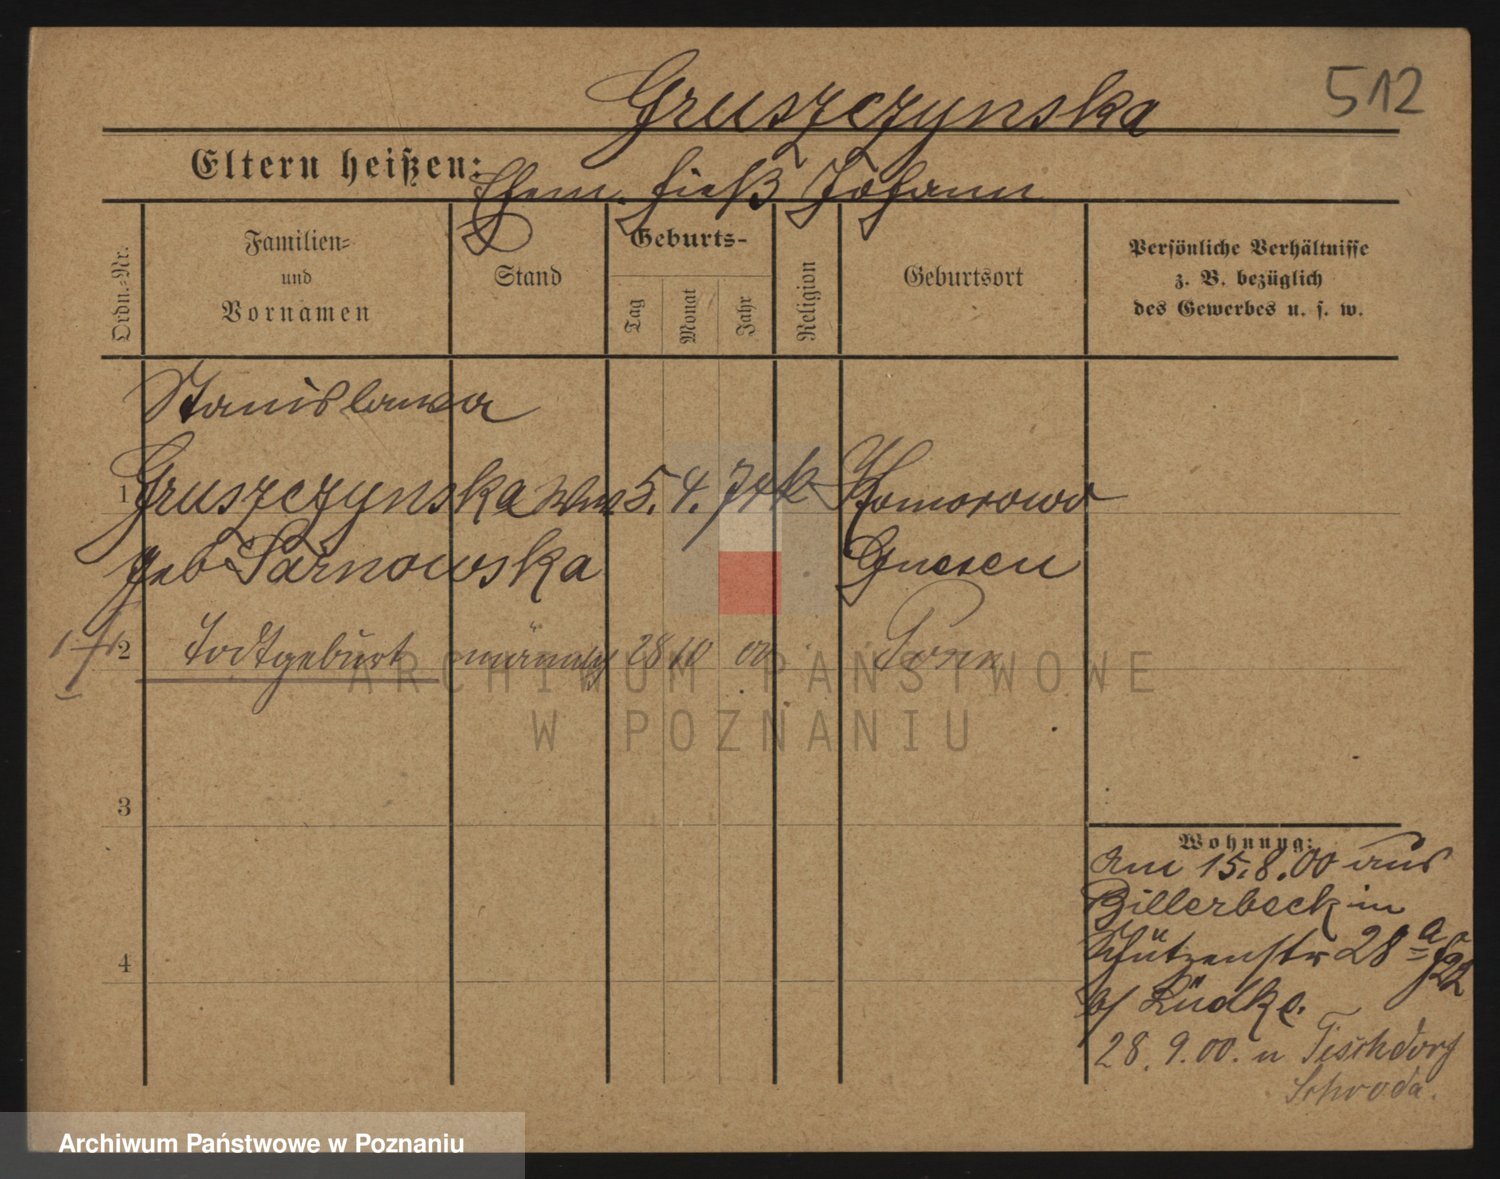 512
Gruszczynska
Eltern heißen: Ehem. hieß Johann
Ordn.-Nr.
Familien-
und
Vornamen
Stand
Geburts-
Tag
Monat
Jahr
Religion
Geburtsort
Persönliche Verhältnisse
z. B. bezüglich
des Gewerbes u. s. w.
Stanislawa
1 Gruszczynska Ww 5. 4. 74 k Komorowo
geb Sarnowska Gnesen
2 Todtgeburt männlich 28 10 00 Posen
ARCHIWUM PAŃSTWOWE
W POZNANIU
3
4
Wohnung:
Am 15.8.00 aus
Billerbeck in
Schützenstr 28 a
b/ Lüdke.
28. 9. 00. n Tischdorf
Schroda.
Archiwum Państwowe w Poznaniu